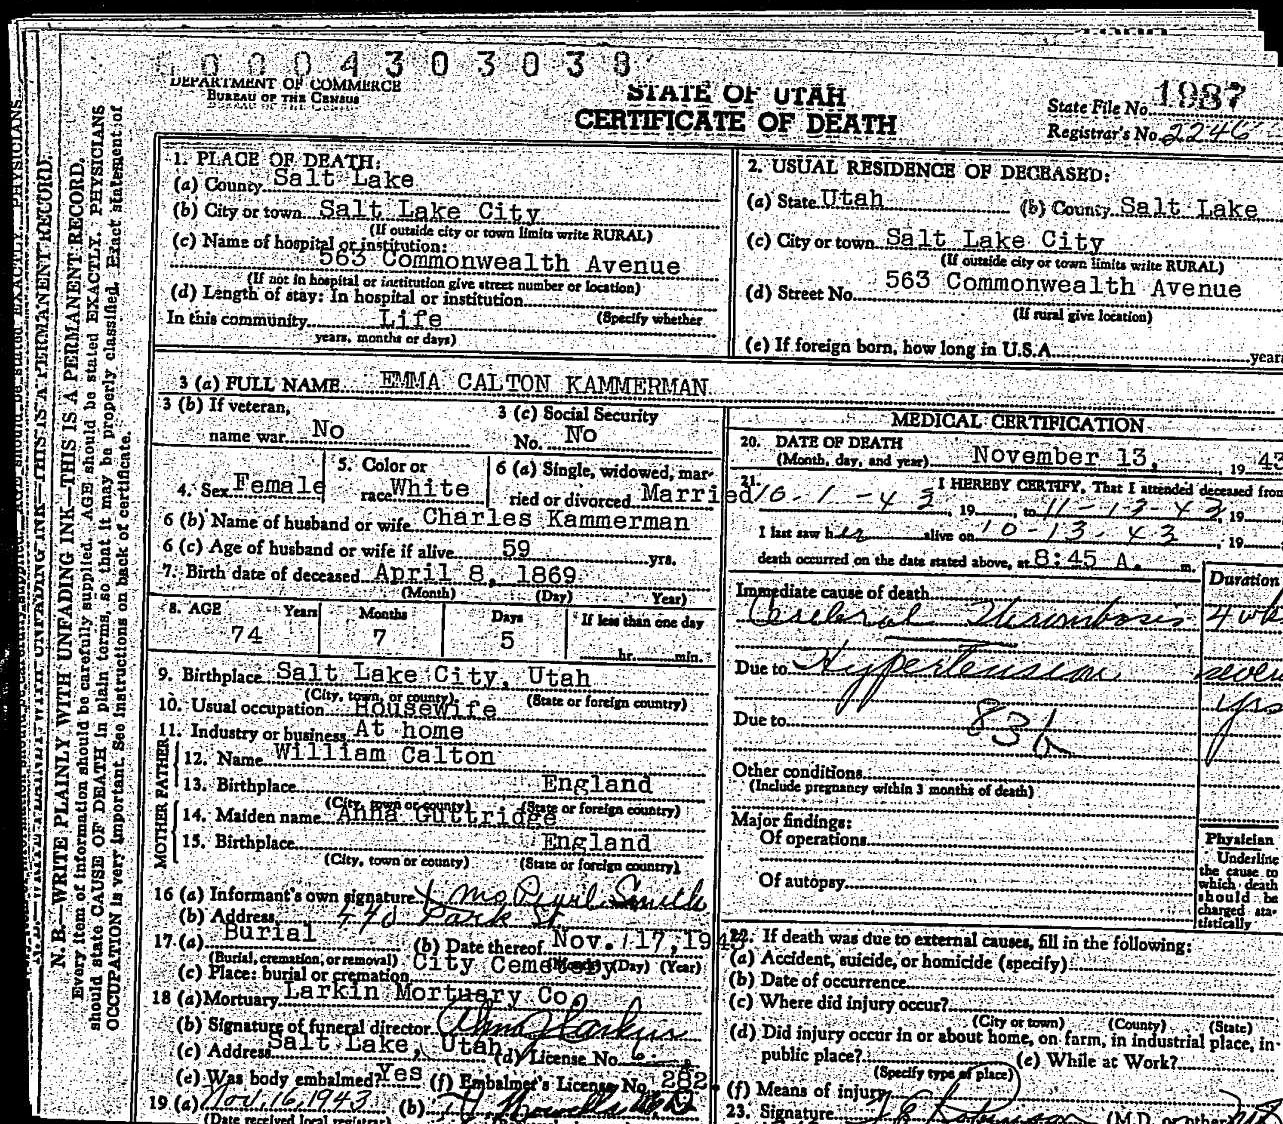 0004303038
DEPARTMENT OF COMMERCE
BUREAU OF THE CENSUS
STATE OF UTAH
CERTIFICATE OF DEATH
State File No. 1987
Registrar's No. 2246
N. B.—WRITE PLAINLY WITH UNFADING INK—THIS IS A PERMANENT RECORD.
Every item of information should be carefully supplied. AGE should be stated EXACTLY. PHYSICIANS
should state CAUSE OF DEATH in plain terms, so that it may be properly classified. Exact statement of
OCCUPATION is very important. See instructions on back of certificate.
1. PLACE OF DEATH:
(a) County Salt Lake
(b) City or town Salt Lake City
(If outside city or town limits write RURAL)
(c) Name of hospital or institution:
563 Commonwealth Avenue
(If not in hospital or institution give street number or location)
(d) Length of stay: In hospital or institution
In this community Life (Specify whether
years, months or days)
2. USUAL RESIDENCE OF DECEASED:
(a) State Utah (b) County Salt Lake
(c) City or town Salt Lake City
(If outside city or town limits write RURAL)
(d) Street No. 563 Commonwealth Avenue
(If rural give location)
(e) If foreign born, how long in U.S.A. year
3 (a) FULL NAME EMMA CALTON KAMMERMAN
3 (b) If veteran, name war No
3 (c) Social Security No. No
4. Sex Female
5. Color or race White
6 (a) Single, widowed, married or divorced Married
6 (b) Name of husband or wife Charles Kammerman
6 (c) Age of husband or wife if alive 59 yrs.
7. Birth date of deceased April 8, 1869
(Month) (Day) Year)
8. AGE Years Months Days If less than one day
74 7 5 hr. min.
9. Birthplace Salt Lake City, Utah
(City, town, or county) (State or foreign country)
10. Usual occupation Housewife
11. Industry or business At home
FATHER
12. Name William Calton
13. Birthplace England
(City, town or county) (State or foreign country)
MOTHER
14. Maiden name Anna Guttridge
15. Birthplace England
(City, town or county) (State or foreign country)
16 (a) Informant's own signature Mrs Pearl Smith
(b) Address 440 Park St
17 (a) Burial (b) Date thereof Nov. 17, 1943
(Burial, cremation, or removal) (Month) (Day) (Year)
(c) Place: burial or cremation City Cemetery
18 (a) Mortuary Larkin Mortuary Co.
(b) Signature of funeral director Alma J Larkin
(c) Address Salt Lake, Utah (d) License No.
(e) Was body embalmed? Yes (f) Embalmer's License No. 282
19 (a) Nov. 16, 1943 (b)
(Date received local registrar)
MEDICAL CERTIFICATION
20. DATE OF DEATH
(Month, day, and year) November 13, 19 43
21. I HEREBY CERTIFY, That I attended deceased from
10-1-43, 19 , to 11-13-43, 19
I last saw her alive on 10-13-43, 19
death occurred on the date stated above, at 8:45 A. m.
Duration
Immediate cause of death
Cerebral Thrombosis 4 wks
Due to Hypertension
yrs
Due to 83b
Other conditions
(Include pregnancy within 3 months of death)
Major findings:
Of operations
Of autopsy
Physician
Underline
the cause to
which death
should be
charged sta-
tistically
22. If death was due to external causes, fill in the following:
(a) Accident, suicide, or homicide (specify)
(b) Date of occurrence
(c) Where did injury occur?
(City or town) (County) (State)
(d) Did injury occur in or about home, on farm, in industrial place, in
public place? (e) While at Work?
(Specify type of place)
(f) Means of injury
23. Signature (M.D. or other)